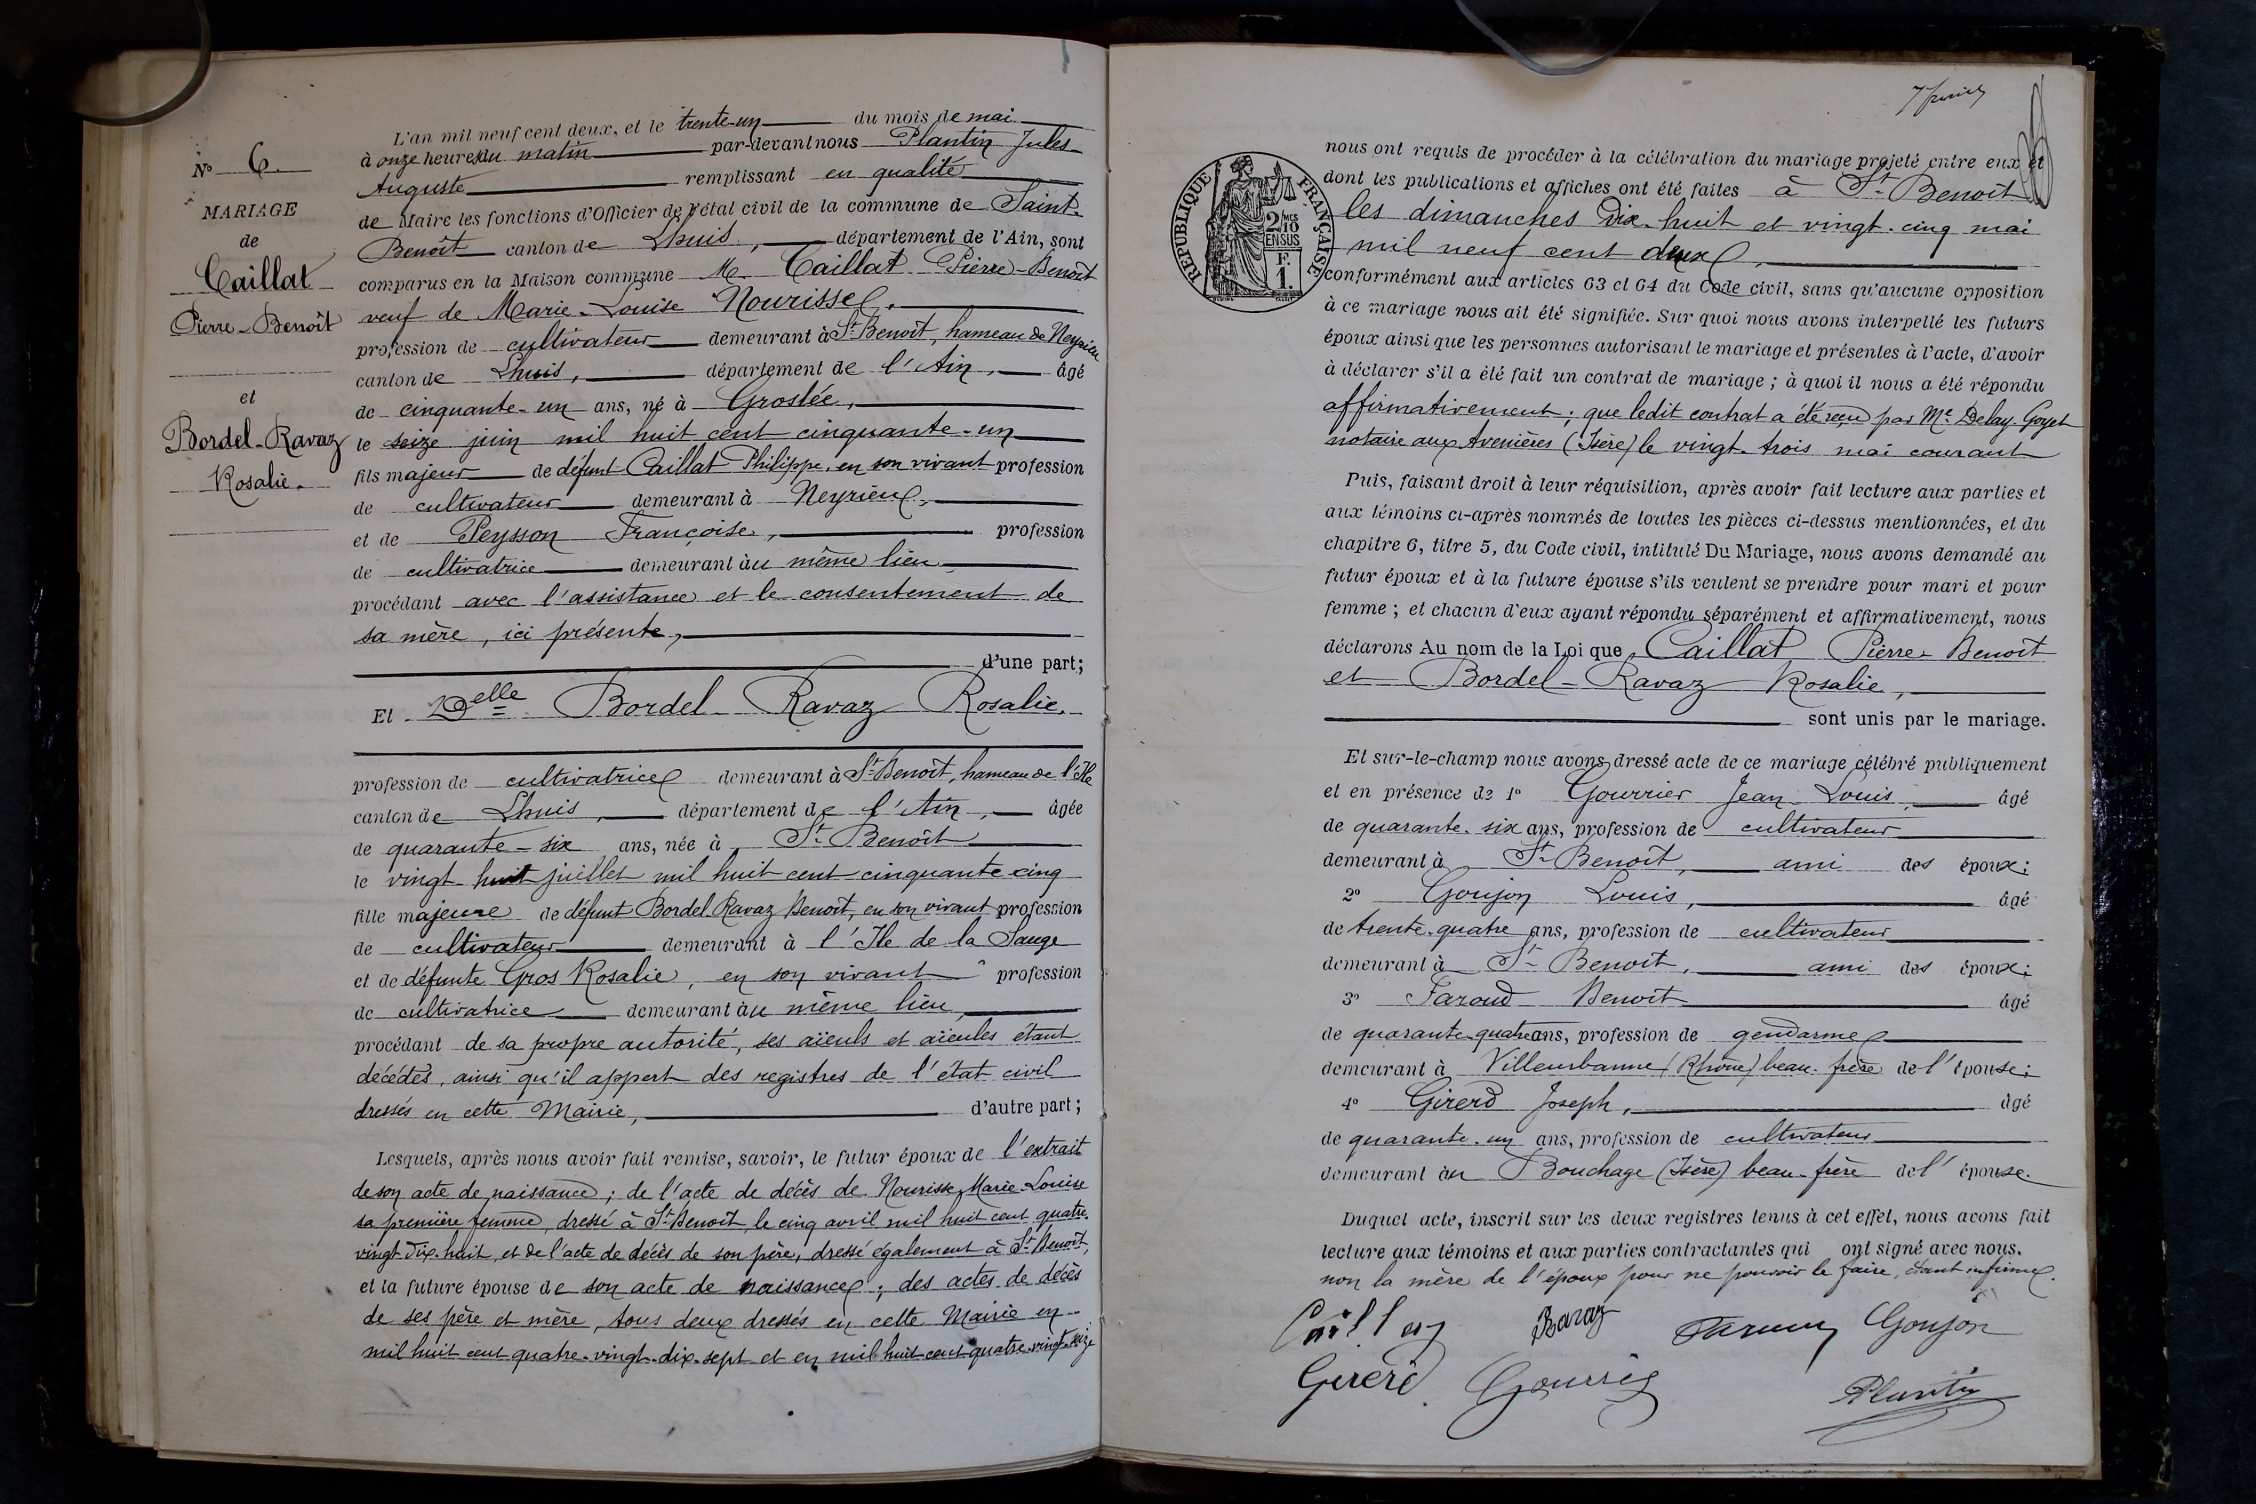 N° 6.
MARIAGE
de
Caillat
Pierre-Benoît
et
Bordel-Ravaz
Rosalie.
L'an mil neuf cent deux, et le trente-un du mois de mai
à onze heures du matin par-devant nous Plantin Jules
Auguste remplissant en qualité
de Maire les fonctions d'Officier de l'état civil de la commune de Saint-
Benoît canton de Lhuis, département de l'Ain, sont
comparus en la Maison commune M. Caillat Pierre-Benoît
veuf de Marie-Louise Nourisse,
profession de cultivateur demeurant à St Benoît, hameau de Neyrieu
canton de Lhuis, département de l'Ain, âgé
de cinquante-un ans, né à Groslée,
le seize juin mil huit cent cinquante-un
fils majeur de défunt Caillat Philippe, en son vivant profession
de cultivateur demeurant à Neyrieu,
et de Peysson Françoise, profession
de cultivatrice demeurant àu même lieu,
procédant avec l'assistance et le consentement de
sa mère, ici présente,
d'une part;
Et Delle Bordel-Ravaz Rosalie.
profession de cultivatrice demeurant à St Benoît, hameau de l'Ile
canton de Lhuis, département de l'Ain, âgée
de quarante-six ans, née à St Benoît
le vingt-huit juillet mil huit cent cinquante cinq
fille majeure de défunt Bordel-Ravaz Benoît, en son vivant profession
de cultivateur demeurant à l'Ile de la Sauge
et de défunte Gros Rosalie, en son vivant profession
de cultivatrice demeurant àu même lieu,
procédant de sa propre autorité, ses aïeuls et aïeules étant
décédés, ainsi qu'il appert des registres de l'état civil
dressés en cette Mairie, d'autre part;
Lesquels, après nous avoir fait remise, savoir, le futur époux de l'extrait
de son acte de naissance; de l'acte de décès de Nourisse Marie-Louise
sa première femme, dressé à St Benoît, le cinq avril mil huit cent quatre-
vingt-dix-huit, et de l'acte de décès de son père, dressé également à St Benoît,
et la future épouse de son acte de naissance; des actes de décès
de ses père et mère, tous deux dressés en cette Mairie en
mil huit cent quatre-vingt-dix-sept et en mil huit cent quatre-vingt-seize
nous ont requis de procéder à la célébration du mariage projeté entre eux et
dont les publications et affiches ont été faites à St Benoît
les dimanches dix-huit et vingt-cinq mai
mil neuf cent deux,
RÉPUBLIQUE FRANÇAISE
2/10 MES
EN SUS
F.
1.
conformément aux articles 63 et 64 du Code civil, sans qu'aucune opposition
à ce mariage nous ait été signifiée. Sur quoi nous avons interpellé les futurs
époux ainsi que les personnes autorisant le mariage et présentes à l'acte, d'avoir
à déclarer s'il a été fait un contrat de mariage; à quoi il nous a été répondu
affirmativement; que ledit contrat a été reçu par Me Delay-Goyet
notaire aux Avenières (Isère) le vingt-trois mai courant
Puis, faisant droit à leur réquisition, après avoir fait lecture aux parties et
aux témoins ci-après nommés de toutes les pièces ci-dessus mentionnées, et du
chapitre 6, titre 5, du Code civil, intitulé Du Mariage, nous avons demandé au
futur époux et à la future épouse s'ils veulent se prendre pour mari et pour
femme; et chacun d'eux ayant répondu séparément et affirmativement, nous
déclarons Au nom de la Loi que Caillat Pierre-Benoît
et Bordel-Ravaz Rosalie,
sont unis par le mariage.
Et sur-le-champ nous avons dressé acte de ce mariage célébré publiquement
et en présence de 1° Gourrier Jean-Louis, âgé
de quarante-six ans, profession de cultivateur
demeurant à St Benoît, ami des époux;
2° Goujon Louis, âgé
de trente-quatre ans, profession de cultivateur
demeurant à St Benoît, ami des époux;
3° Faroud Benoît âgé
de quarante-quatre ans, profession de gendarme
demeurant à Villeurbanne (Rhône) beau-frère de l'épouse;
4° Girerd Joseph, âgé
de quarante-un ans, profession de cultivateur
demeurant àu Bouchage (Isère) beau-frère de l'épouse.
Duquel acte, inscrit sur les deux registres tenus à cet effet, nous avons fait
lecture aux témoins et aux parties contractantes qui ont signé avec nous.
non la mère de l'époux pour ne pouvoir le faire, étant infirme.
Ravaz Goujon
Girerd
Plantin